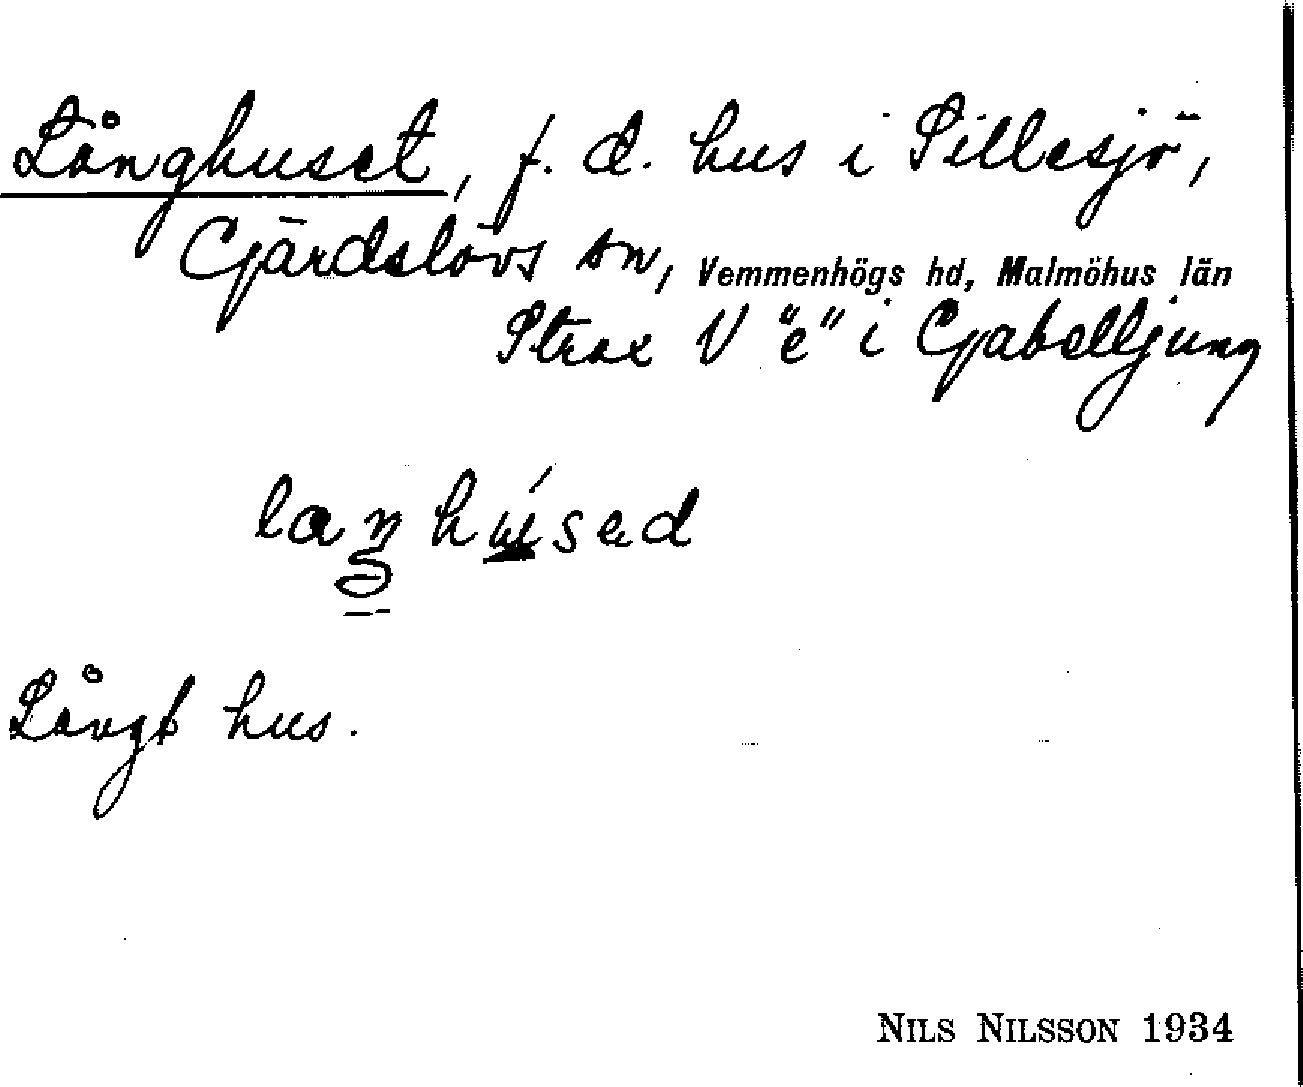 Långhuset, f. d. hus i Sillesjö,
Gärdslövs sn, Vemmenhögs hd, Malmöhus län
Strax V "e" i Gabelljung
laŋhúsəd
Långt hus.
NILS NILSSON 1934